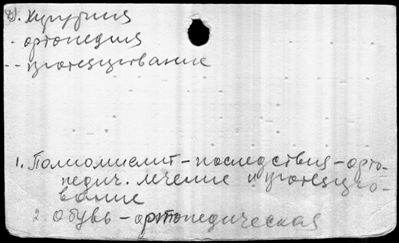 Хирургия
- ортопедия
-- протезирование
1. Полиомиелит - последствия - орто-
педич. лечение и протезиро-
вание
2. Обувь - ортопедическая